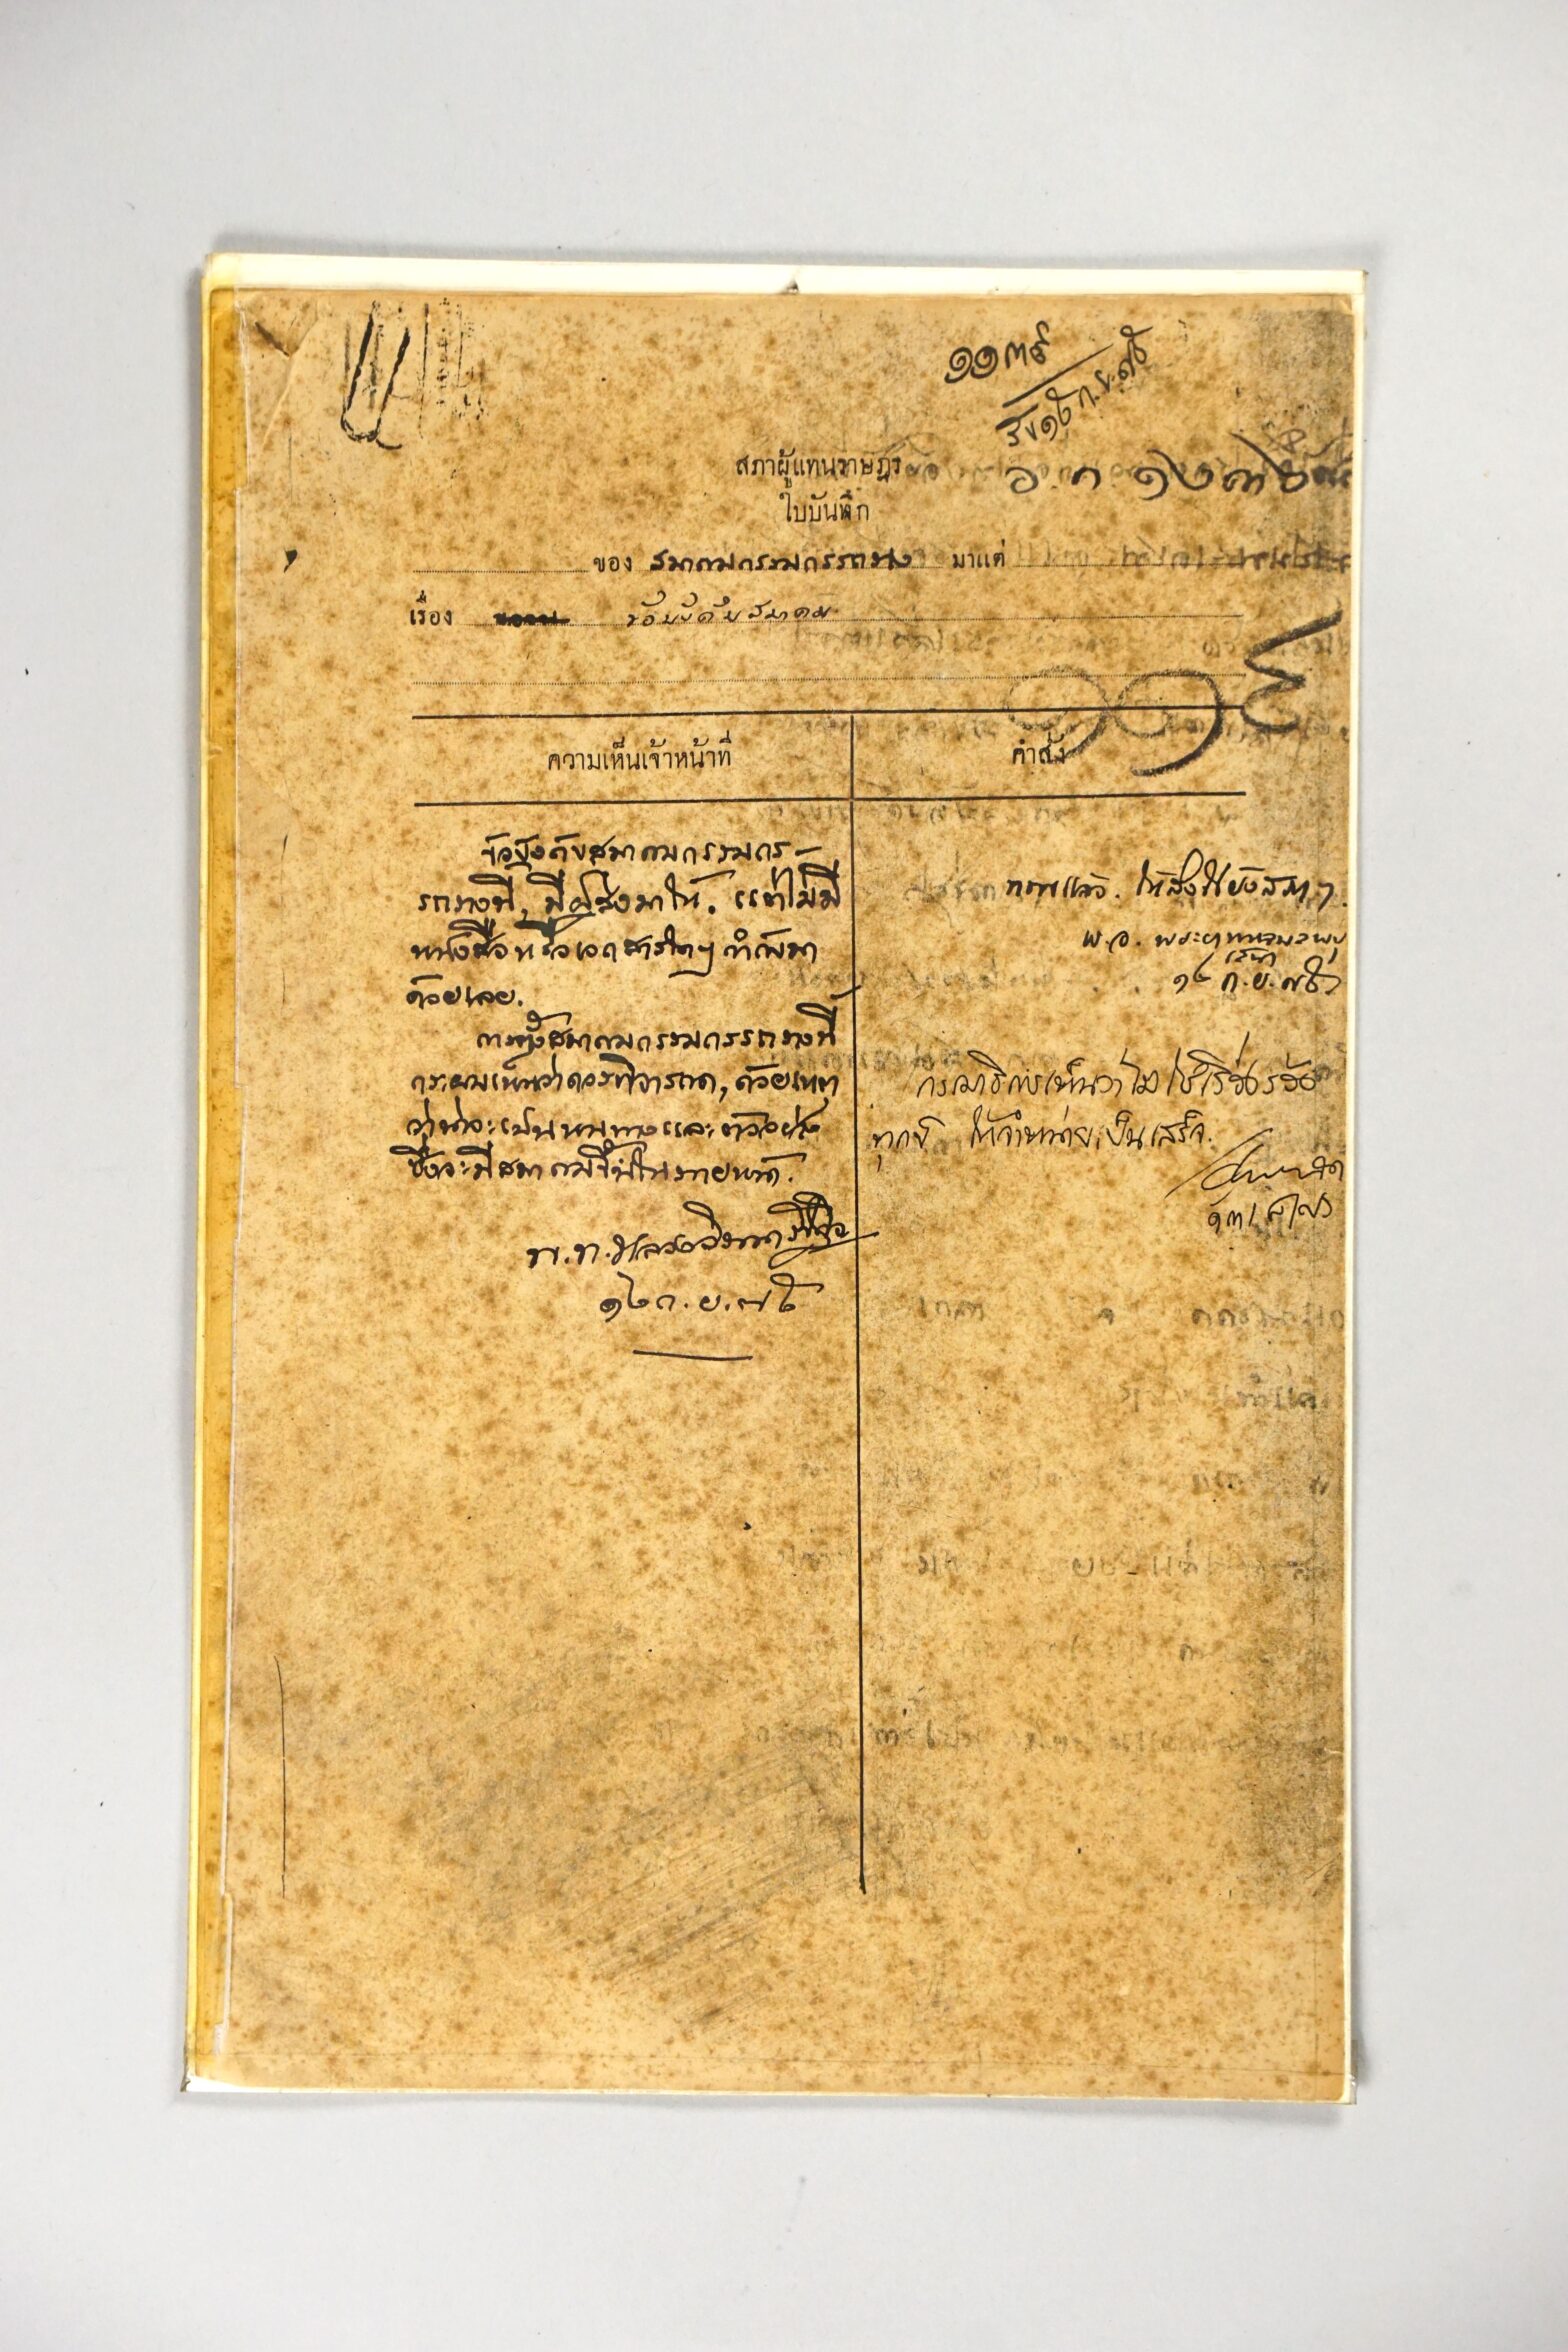 ๑๑๓๕
รับ ๑๕ ก.ย. ๗๕
สภาผู้แทนราษฎร
ใบบันทึก
ของ สมาคมกรรมกรรถราง มาแต่
เรื่อง ข้อบังคับสมาคม
๑๑๕
ความเห็นเจ้าหน้าที่
คำสั่ง
ข้อบังคับสมาคมกรรมกร
รถรางนี้, มีผู้ส่งมาให้. แต่ไม่มี
หนังสือหรือเอกสารใดๆ กำกับมา
ด้วยเลย.
การตั้งสมาคมกรรมกรรถรางนี้
กระผมเห็นว่าควรพิจารณา, ด้วยเหตุ
ว่าน่าจะเป็นหนทางและตัวอย่าง
ซึ่งจะมีสมาคมขึ้นในภายหน้า.
พ.ท.
๑๒ ก.ย. ๗๕
ทราบแล้ว. ให้ส่งไปยังสภาฯ.
พ.อ. พระยาพหลพลพยุ
เสนา
๑๒ ก.ย. ๗๕
กรมาธิการเห็นว่าไม่ใช่เรื่องร้อง
ทุกข์ ให้จำหน่ายเป็นเสร็จ.